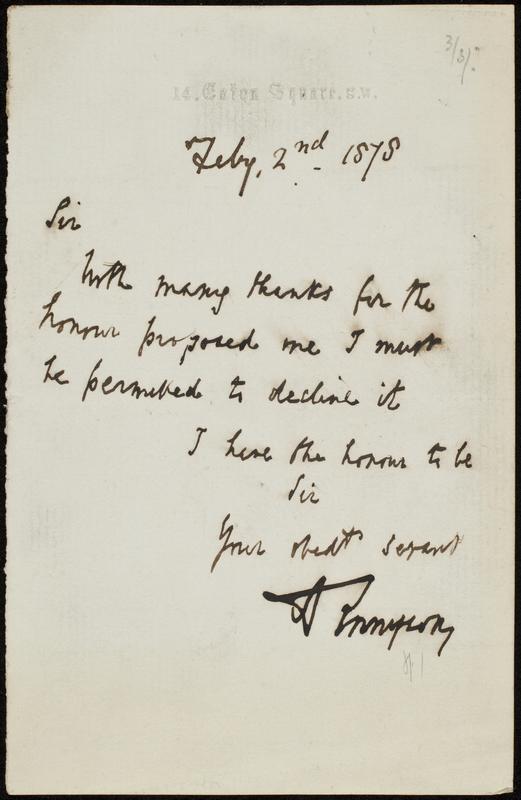 3/3/.
14. Eaton Square. S.W.
Feby, 2nd - 1878
Sir
With many thanks for the
honour proposed me I must
be permitted to decline it
I have the honour to be
Sir
Your obedt servant
A Tennyson